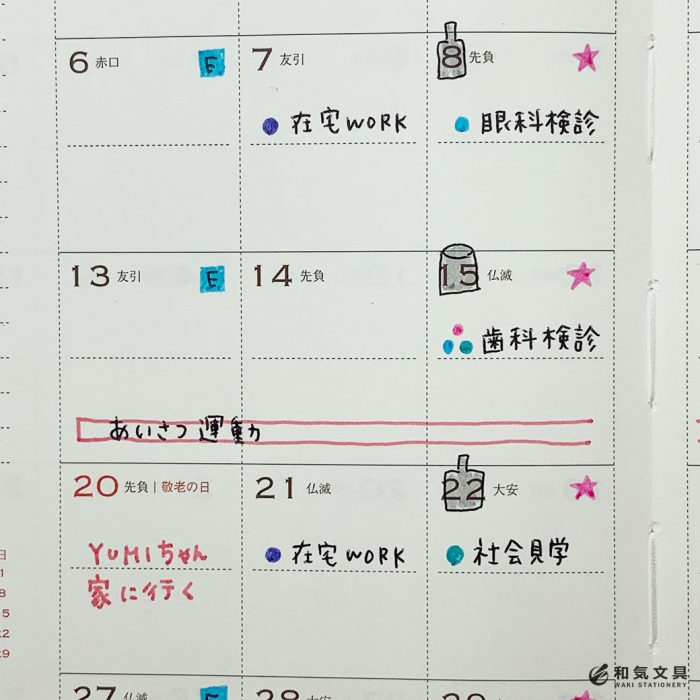 6 赤口 E
7 友引
8 先負
在宅WORK
眼科検診
13 友引 E
14 先負
15 仏滅
歯科検診
あいさつ運動
20 先負 | 敬老の日
21 仏滅
22 大安
YUMIちゃん
家に行く
在宅WORK
社会見学
日
1
8
15
22
29
27 仏滅
28 大安
和気文具
WAKI STATIONERY